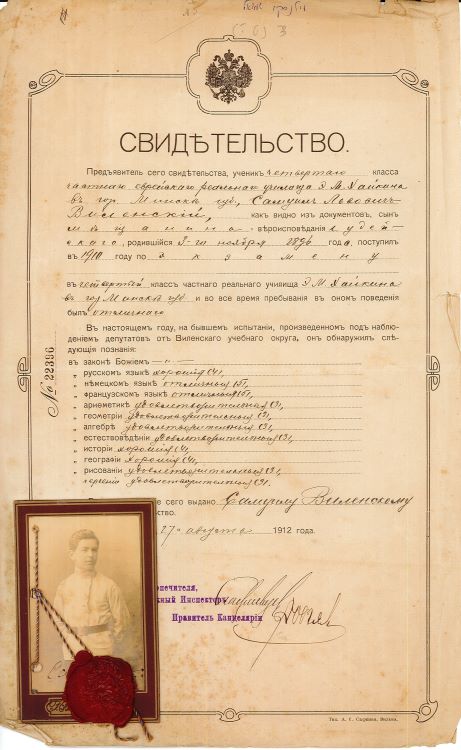 СВИДѢТЕЛЬСТВО.
Предъявитель сего свидѣтельства, ученикъ четвертаго класса
частнаго еврейскаго реальнаго училища Э. М. Хайкина
въ гор. Минскѣ губ., Самуилъ Львовичъ
Виленскій, какъ видно изъ документовъ, сынъ
мѣщанина вѣроисповѣданія іудей-
скаго, родившійся 5-го ноября 1896 года, поступилъ
въ 1910 по экзамену
въ четвертый классъ частнаго реальнаго училища Э. М. Хайкина
въ гор. Минскѣ губ. и во все время пребыванія въ ономъ поведенія
былъ отличнаго
Въ настоящемъ году, на бывшемъ испытаніи, произведенномъ подъ наблю-
деніемъ депутатовъ отъ Виленскаго учебнаго округа, онъ обнаружилъ слѣ-
дующія познанія:
въ законѣ Божіемъ
„ русскомъ языкѣ хорошія (4),
„ нѣмецкомъ языкѣ отличныя (5),
„ французскомъ языкѣ отличныя (5),
„ ариѳметикѣ удовлетворительныя (3),
„ геометріи удовлетворительныя (3),
„ алгебрѣ удовлетворительныя (3),
„ естествовѣдѣніи удовлетворительныя (3),
„ исторіи хорошія (4),
„ географіи хорошія (4),
„ рисованіи удовлетворительныя (3),
„ черченіи удовлетворительныя (3),
сего выдано Самуилу Виленскому
ство.
27 августа 1912 года.
№ 22386
опечителя,
жный Инспекторъ
Правитель Канцеляріи
Тип. А. Г. Сыркина, Вильна.